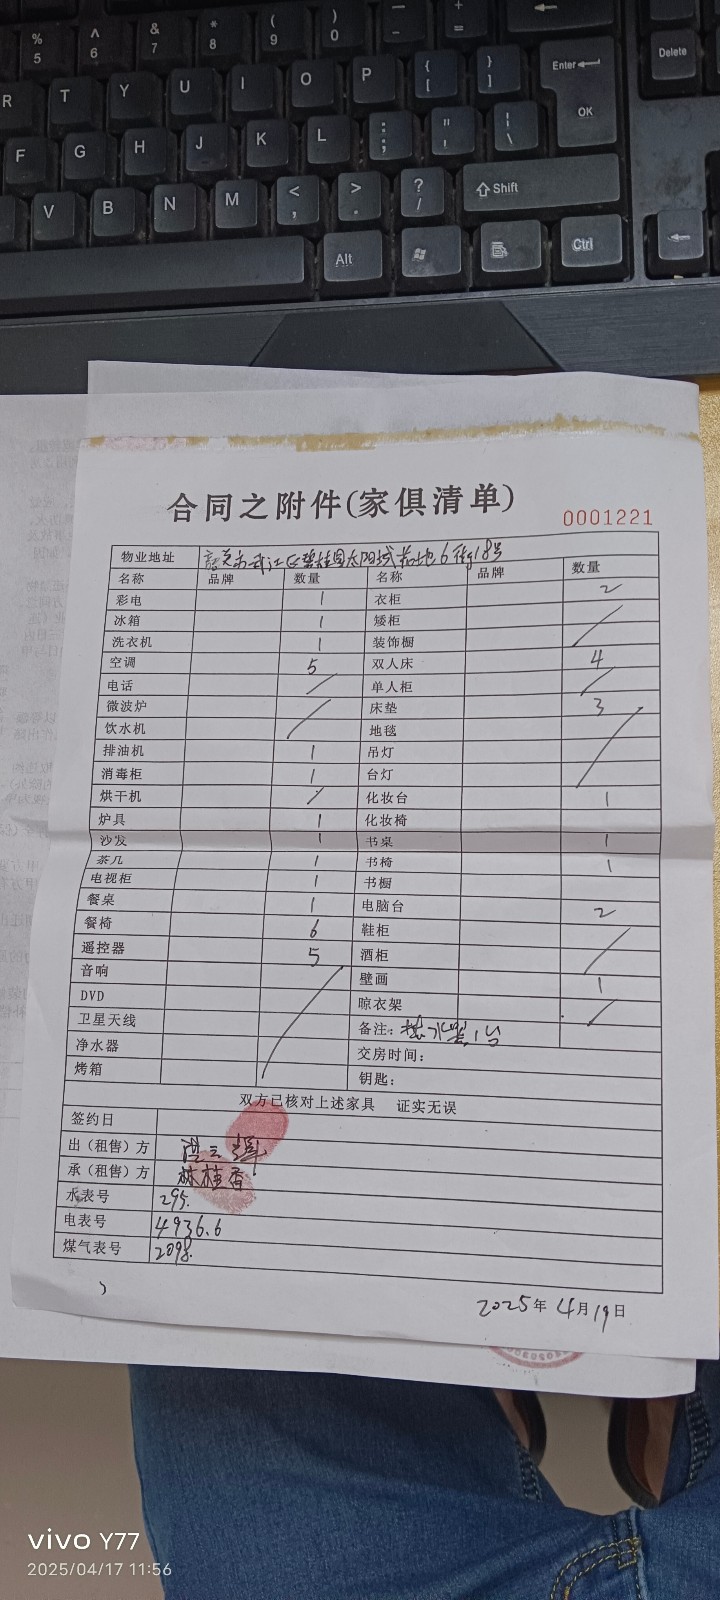 % 5
^ 6
& 7
* 8
( 9
) 0
— -
+ =
R T Y U I O P { [ } ]
Enter
Delete
F G H J K L : ; " ' | \
OK
V B N M < , > . ? / Shift
Alt
Ctrl
合同之附件(家俱清单)
0001221
物业地址 韶关市武江区碧桂园太阳城 6街18号
名称 品牌 数量 名称 品牌 数量
彩电 1 衣柜 2
冰箱 1 矮柜
洗衣机 1 装饰橱
空调 5 双人床 4
电话 单人柜
微波炉 床垫 3
饮水机 地毯
排油机 1 吊灯
消毒柜 1 台灯
烘干机 化妆台 1
炉具 1 化妆椅
沙发 1 书桌 1
茶几 1 书椅 1
电视柜 1 书橱
餐桌 1 电脑台 2
餐椅 6 鞋柜
遥控器 5 酒柜
音响 壁画 1
DVD 晾衣架
卫星天线 备注: 热水器1台
净水器 交房时间:
烤箱 钥匙:
双方已核对上述家具 证实无误
签约日
出（租售）方
承（租售）方 林桂香
水表号 295.
电表号 4936.6
煤气表号 2098.
2025年 4月19日
vivo Y77
2025/04/17 11:56